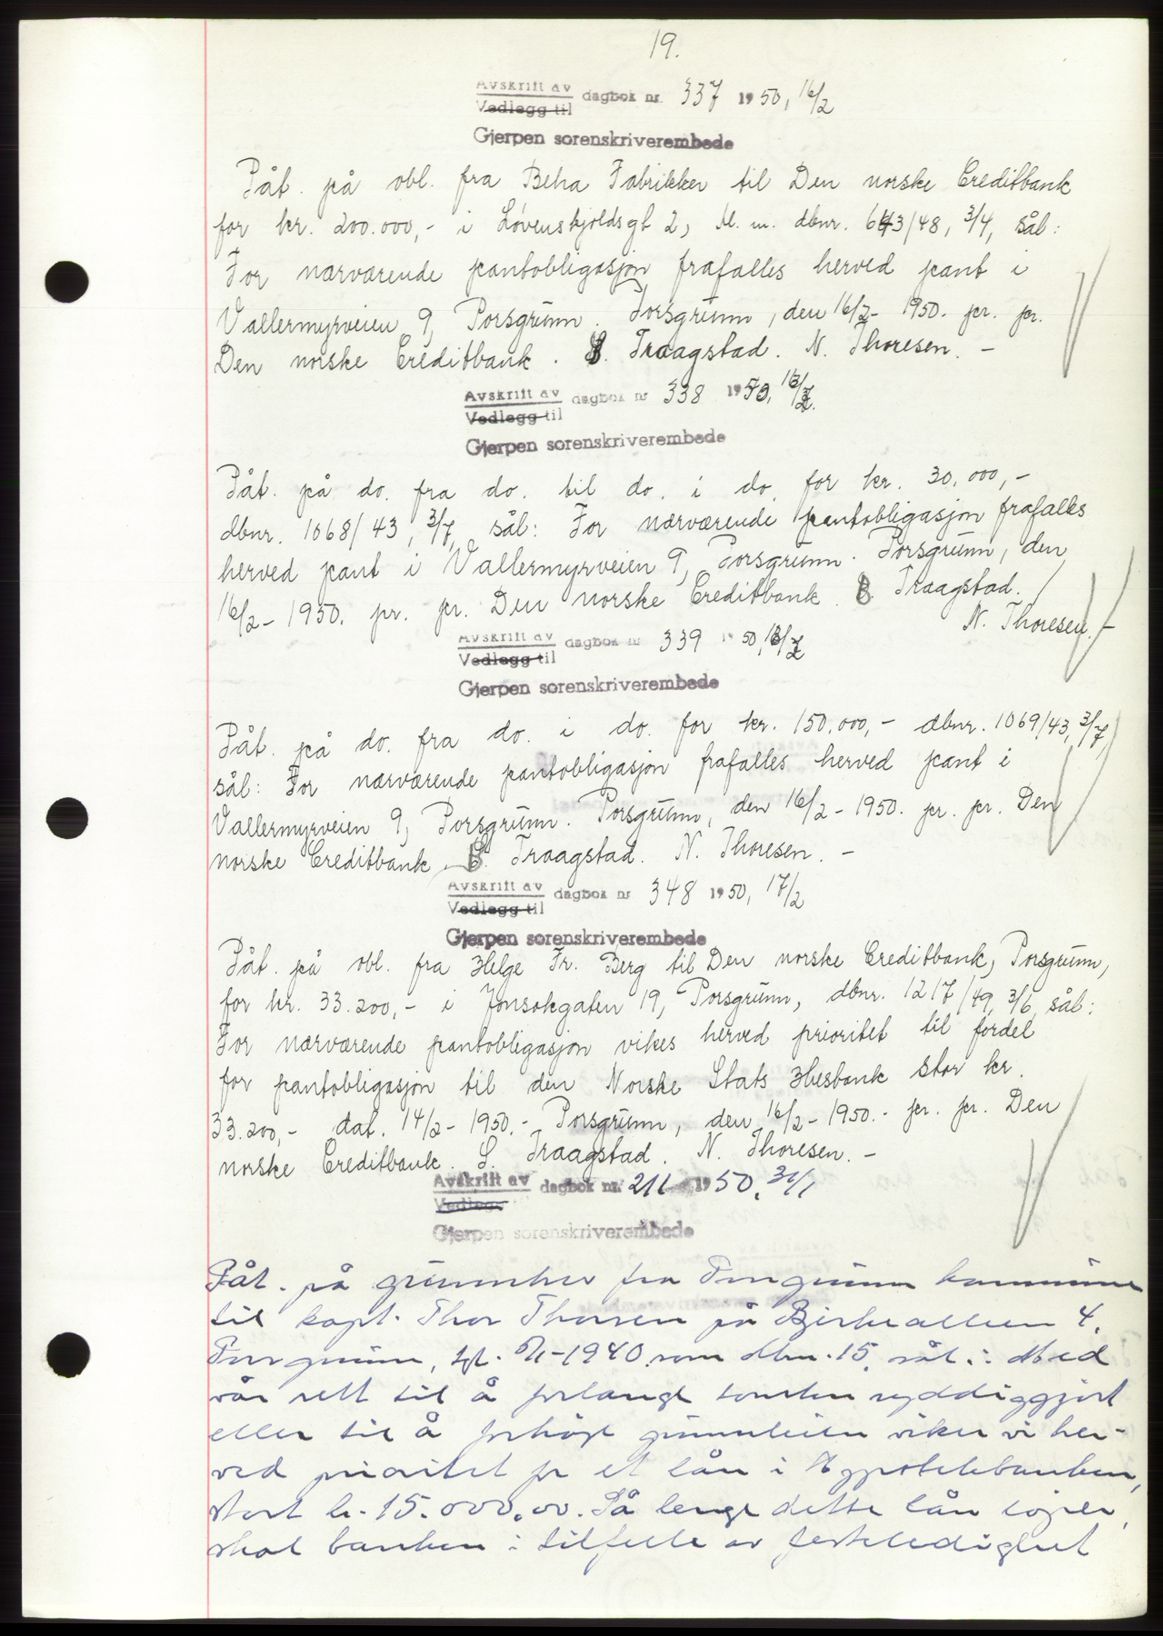 19.
Avskrift av
Vedlegg til dagbok nr. 337 1950, 16/2
Gjerpen sorenskriverembede
Påt. på obl. fra Beha Fabrikker til Den norske Creditbank
for kr. 200.000,- i Løvenskjoldsgt 2, bl. m. dbnr. 643/48, 3/4, sål:
For nærværende pantobligasjon frafalles herved pant i
Vallermyrveien 9, Porsgrunn. Porsgrunn, den 16/2- 1950. pr. pr.
Den norske Creditbank. S. Traagstad. N. Thoresen. -
Avskrift av
Vedlegg til dagbok nr 338 1950, 16/2.
Gjerpen sorenskriverembede
Påt. på do. fra do. til do. i do. for kr. 30.000,-
dbnr. 1068/43, 3/7, sål: For nærværende pantobligasjon frafalles
herved pant i Vallermyrveien 9, Porsgrunn. Porsgrunn, den
16/2- 1950. pr. pr. Den norske Creditbank. S. Traagstad.
N. Thoresen. -
Avskrift av
Vedlegg til dagbok nr 339 1950, 16/2
Gjerpen sorenskriverembede
Påt. på do. fra do. i do. for kr. 150.000,- dbnr. 1069/43, 3/7,
sål: For nærværende pantobligasjon frafalles herved pant i
Vallermyrveien 9, Porsgrunn. Porsgrunn, den 16/2- 1950. pr. pr. Den
norske Creditbank. S. Traagstad. N. Thoresen. -
Avskrift av
Vedlegg til dagbok nr 348 1950, 17/2
Gjerpen sorenskriverembede
Påt. på obl. fra Helge Fr. Berg til Den norske Creditbank, Porsgrunn,
for kr. 33.200,- i Jonsokgaten 19, Porsgrunn, dbnr. 1217/49, 3/6, sål:
For nærværende pantobligasjon vikes herved prioritet til fordel
for pantobligasjon til den Norske Stats Husbank stor kr.
33.200,- dat. 14/2- 1950.- Porsgrunn, den 16/2- 1950.- pr. pr. Den
norske Creditbank. S. Traagstad. N. Thoresen. -
Avskrift av
Vedlegg dagbok nr. 211 1950, 31/1
Gjerpen sorenskriverembede
Påt. på grunnbrev fra Porsgrunn kommune
til kapt. Thor Thorsen på Bjerkealleen 4,
Porsgrunn, tgl. 1940 som dbnr. 15, sål.: Med
vår rett til å forlange tomten ryddiggjort
eller til å forhøye grunnleien viker vi her-
ved prioritet for et lån i Hypotekbanken,
stort kr. 15.000,00. Så lenge dette lån løper,
skal banken i tilfelle av festeledighet